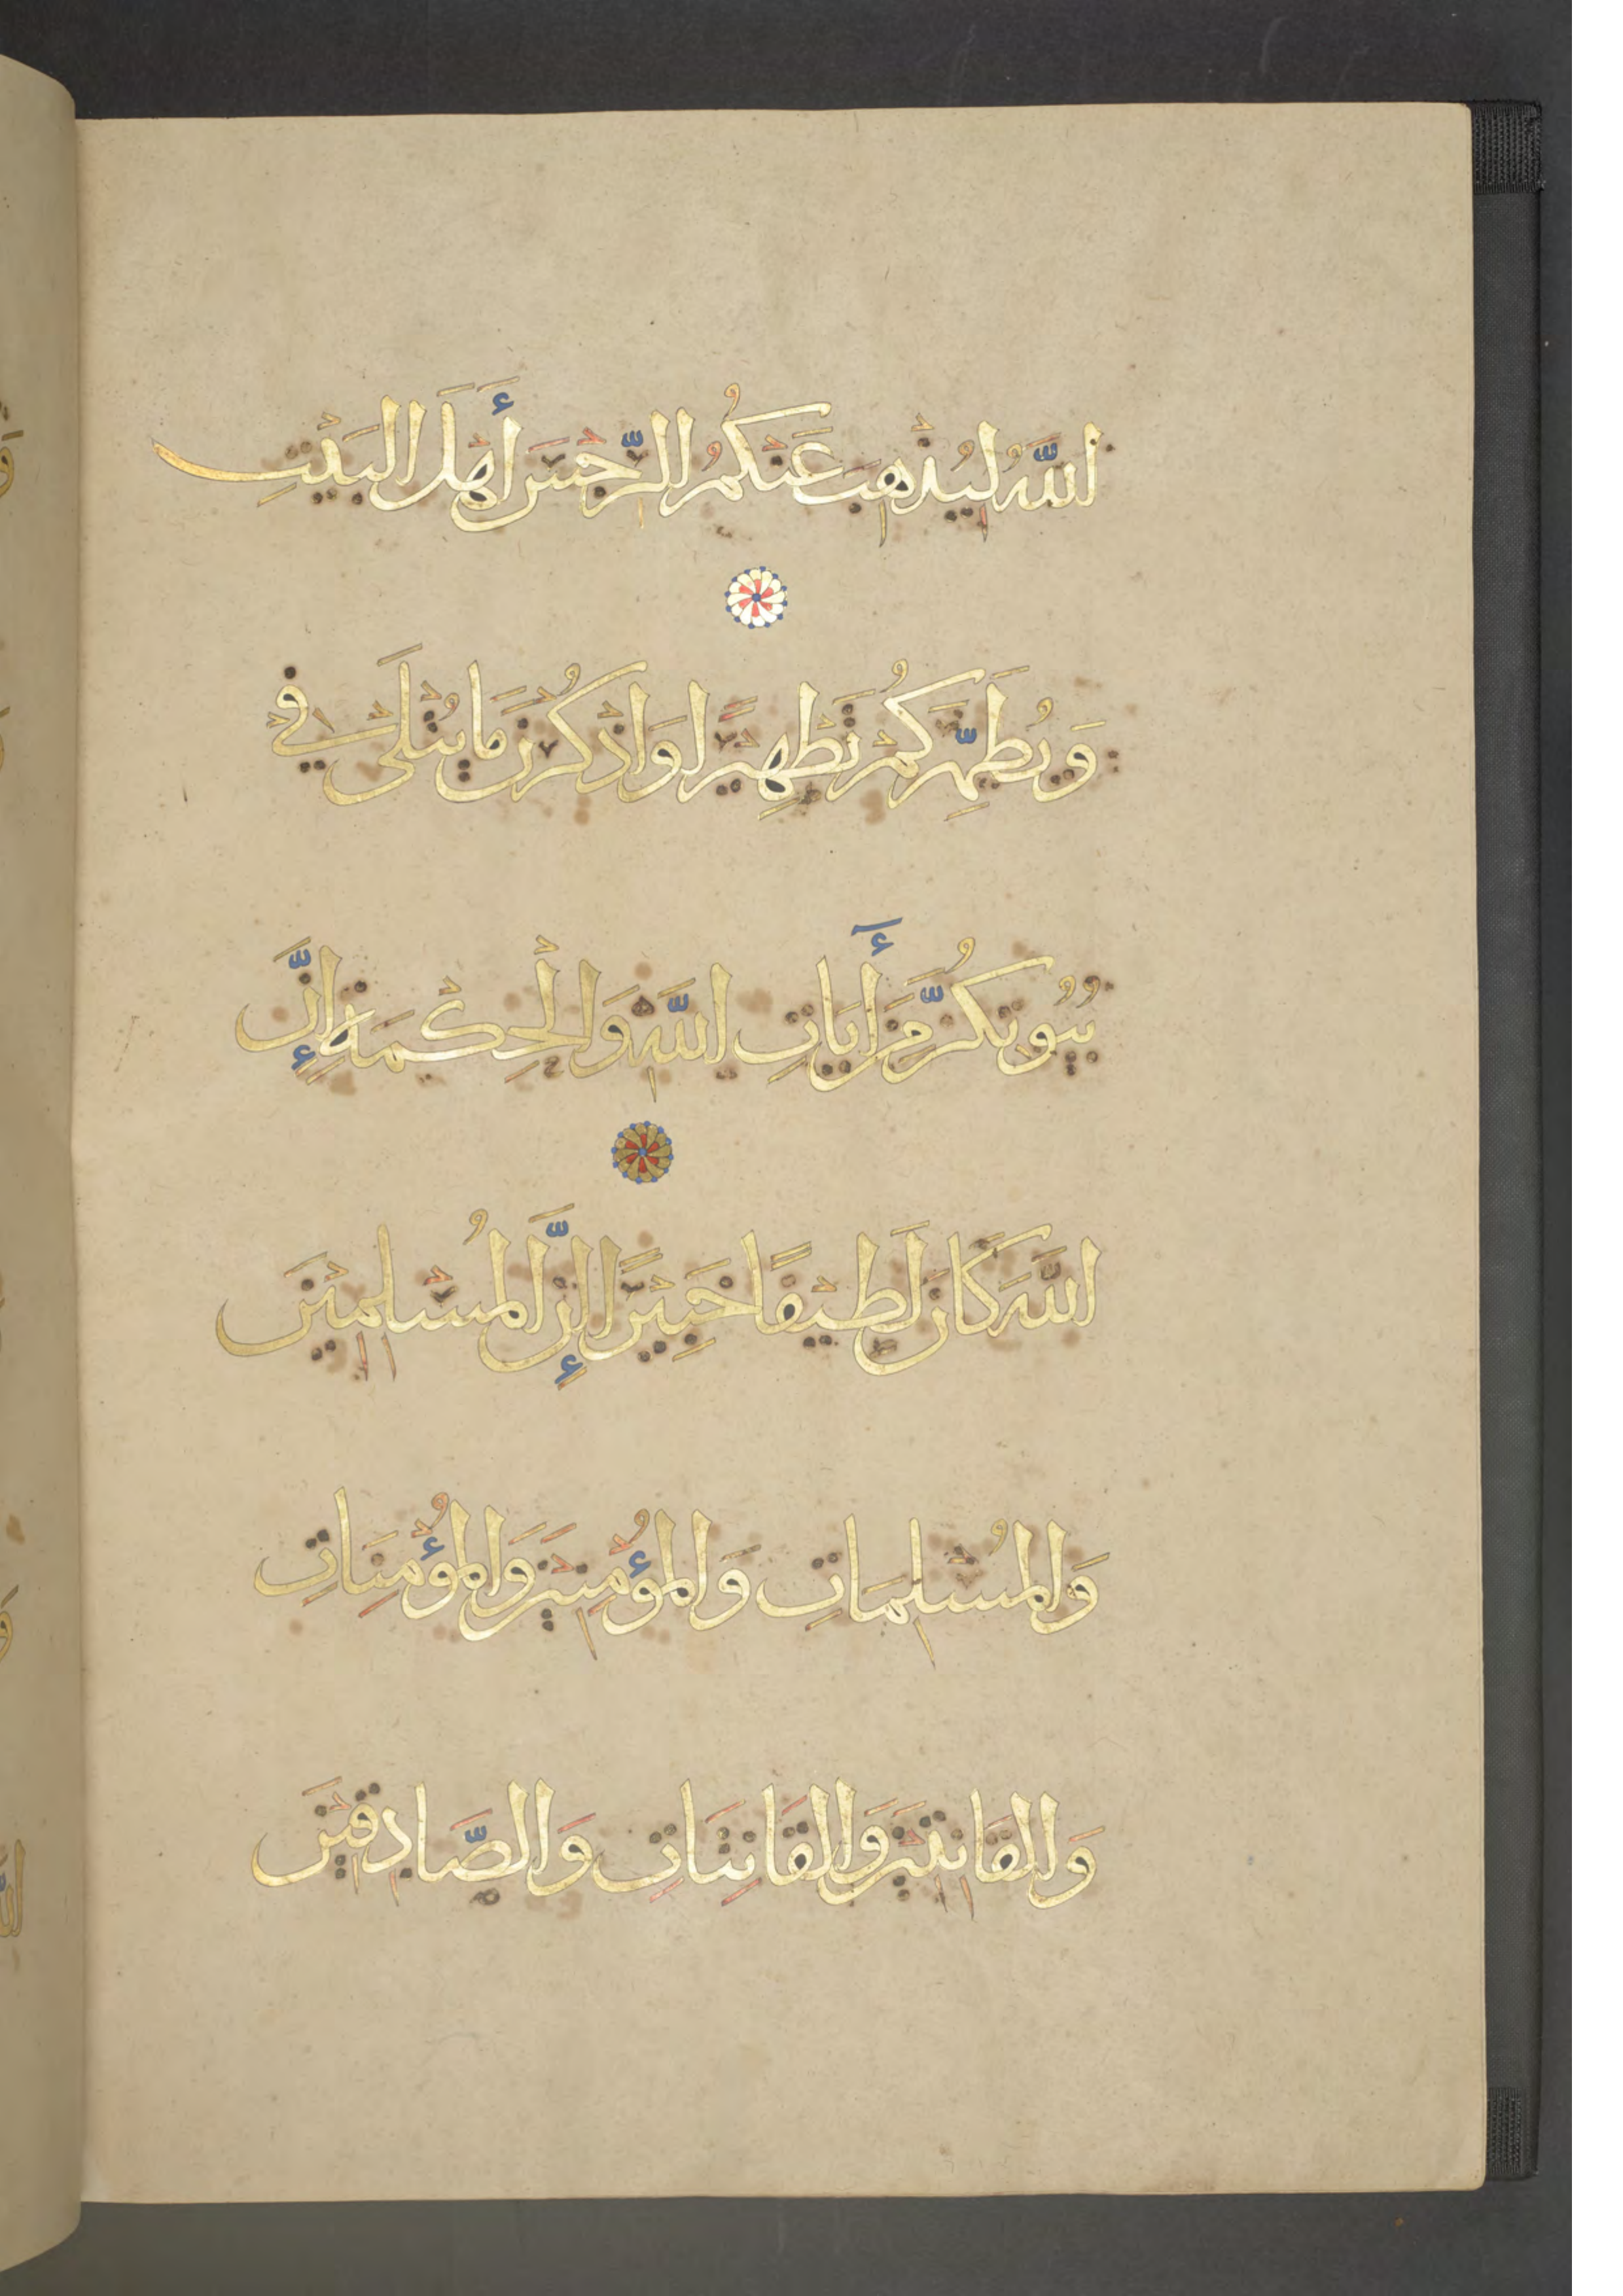 اللَّهُ لِيُذْهِبَ عَنْكُمُ الرِّجْسَ أَهْلَ الْبَيْتِ
وَيُطَهِّرَكُمْ تَطْهِيْرًا وَاذْكُرْنَ مَا يُتْلَى فِيْ
بُيُوتِكُنَّ مِنْ أَيَاتِ اللَّهِ وَالْحِكْمَةِ إِنَّ
اللَّهَ كَانَ لَطِيْفًا خَبِيْرًا إِنَّ الْمُسْلِمِيْنَ
وَالْمُسْلِمَاتِ وَالْمُؤْمِنِيْنَ وَالْمُؤْمِنَاتِ
وَالْقَانِتِيْنَ وَالْقَانِتَاتِ وَالصَّادِقِيْنَ